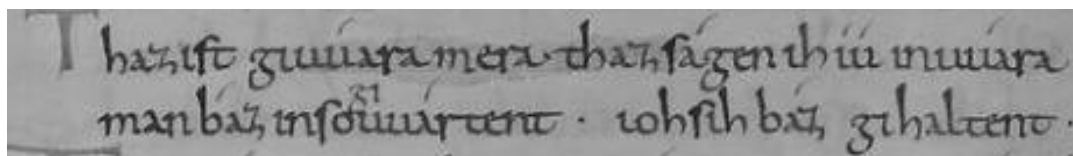 Thaz ist giuuára mera· thaz ságen ih íu in uuára
man báz in so giuuártent · ioh sih báz gihaltent ·